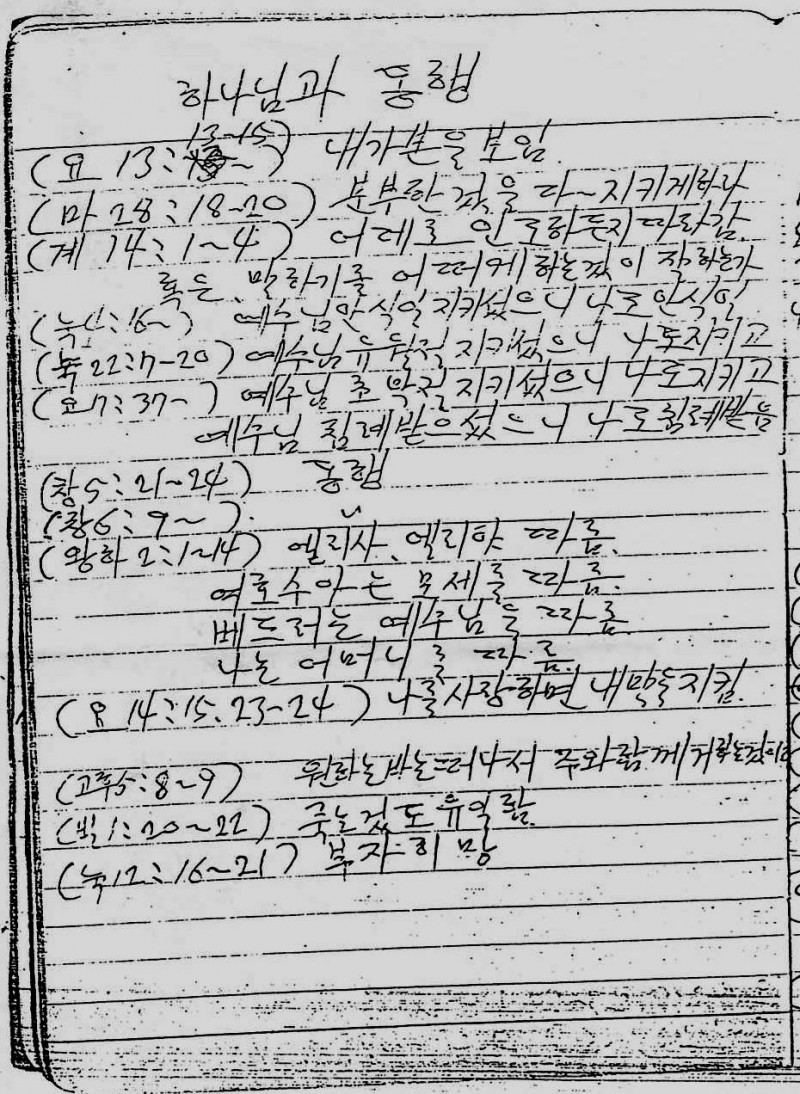 하나님과 동행
13-15
(요 13: ~) 내가본을 보임.
(마 28:18-20) 분부한 것을 다~지키게하라
(계 14:1~4) 어데로 인도하든지 따라감.
혹은, 말하기를 어떠게하는것이 잘하는가
(눅4:16~) 예수님안식일지키셨으니 나도안식일
(눅22:7-20) 예수님유월절 지키셨으니 나도지키고
(요7:37~) 예수님 초막절지키셨으니 나도지키고
예수님 침례받으셨으니 나도침례받음
(창5:21~24) 동행
(창6:9~)
(왕하2:1~14) 엘리사、엘리야 따름.
여호수아는 모세를 따름.
베드러는 예수님을 따름
나는 어머니를 따름.
(요14:15.23-24) 나를사랑하면 내말을지킴.
(고후5:8~9) 원하는바는떠나서 주와함께거하는것이라
(빌1:20~22) 죽는것도유익함.
(눅12:16~21) 부자희망